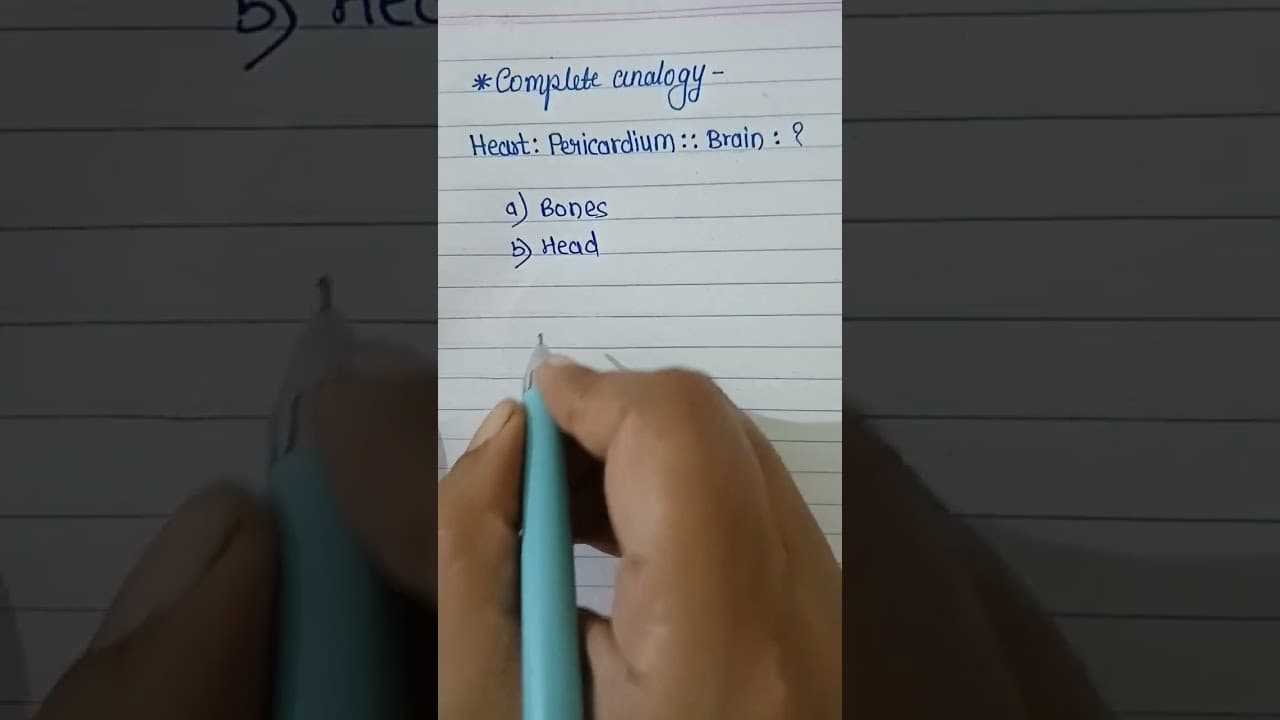 b) Hec
*Complete analogy-
Heart: Pericardium:: Brain: ?
a) Bones
b) Head